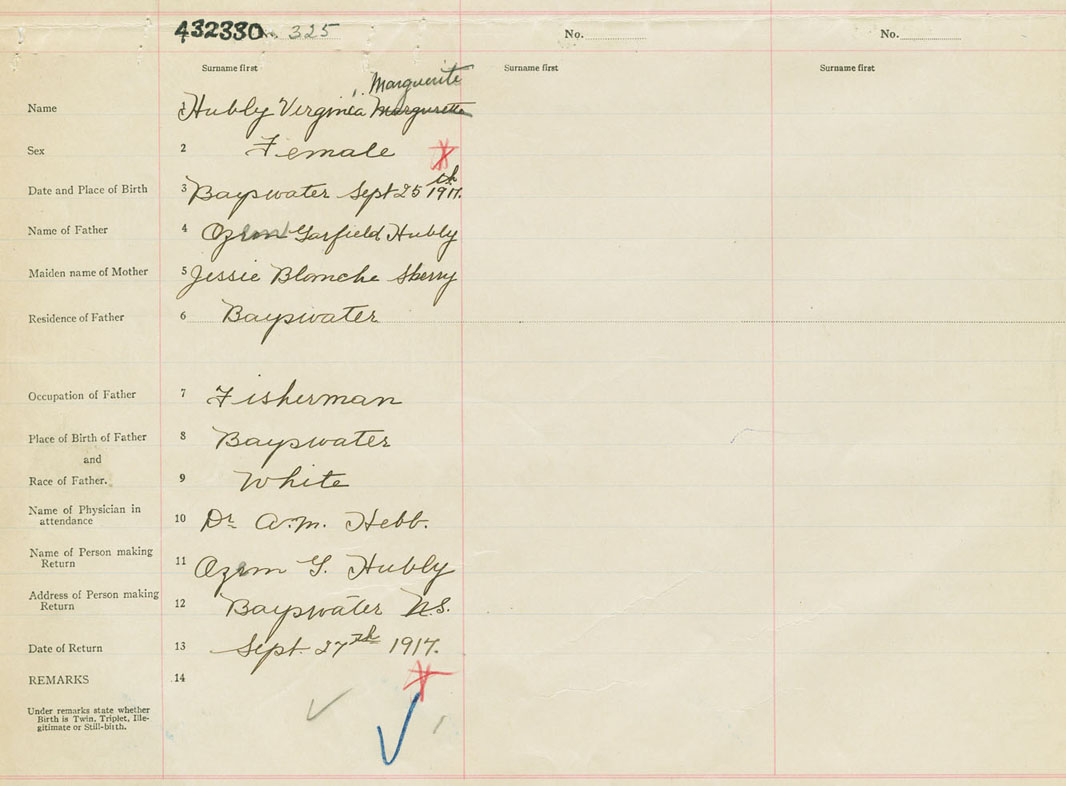 432330 No. 325 No. No.
Surname first Surname first Surname first
Marguerite
Name 1 Hubly Virginia Margurette
Sex 2 Female
th
Date and Place of Birth 3 Bayswater Sept 25 1917.
Name of Father 4 Ozem Garfield Hubly
Maiden name of Mother 5 Jessie Blanche Sherry
Residence of Father 6 Bayswater
Occupation of Father 7 Fisherman
Place of Birth of Father 8 Bayswater
and
Race of Father. 9 White
Name of Physician in
attendance 10 Dr A. M. Hebb.
Name of Person making
Return 11 Ozem G. Hubly
Address of Person making
Return 12 Bayswater N.S.
Date of Return 13 Sept. 27th 1917.
REMARKS 14
Under remarks state whether
Birth is Twin, Triplet, Ille-
gitimate or Still-birth.